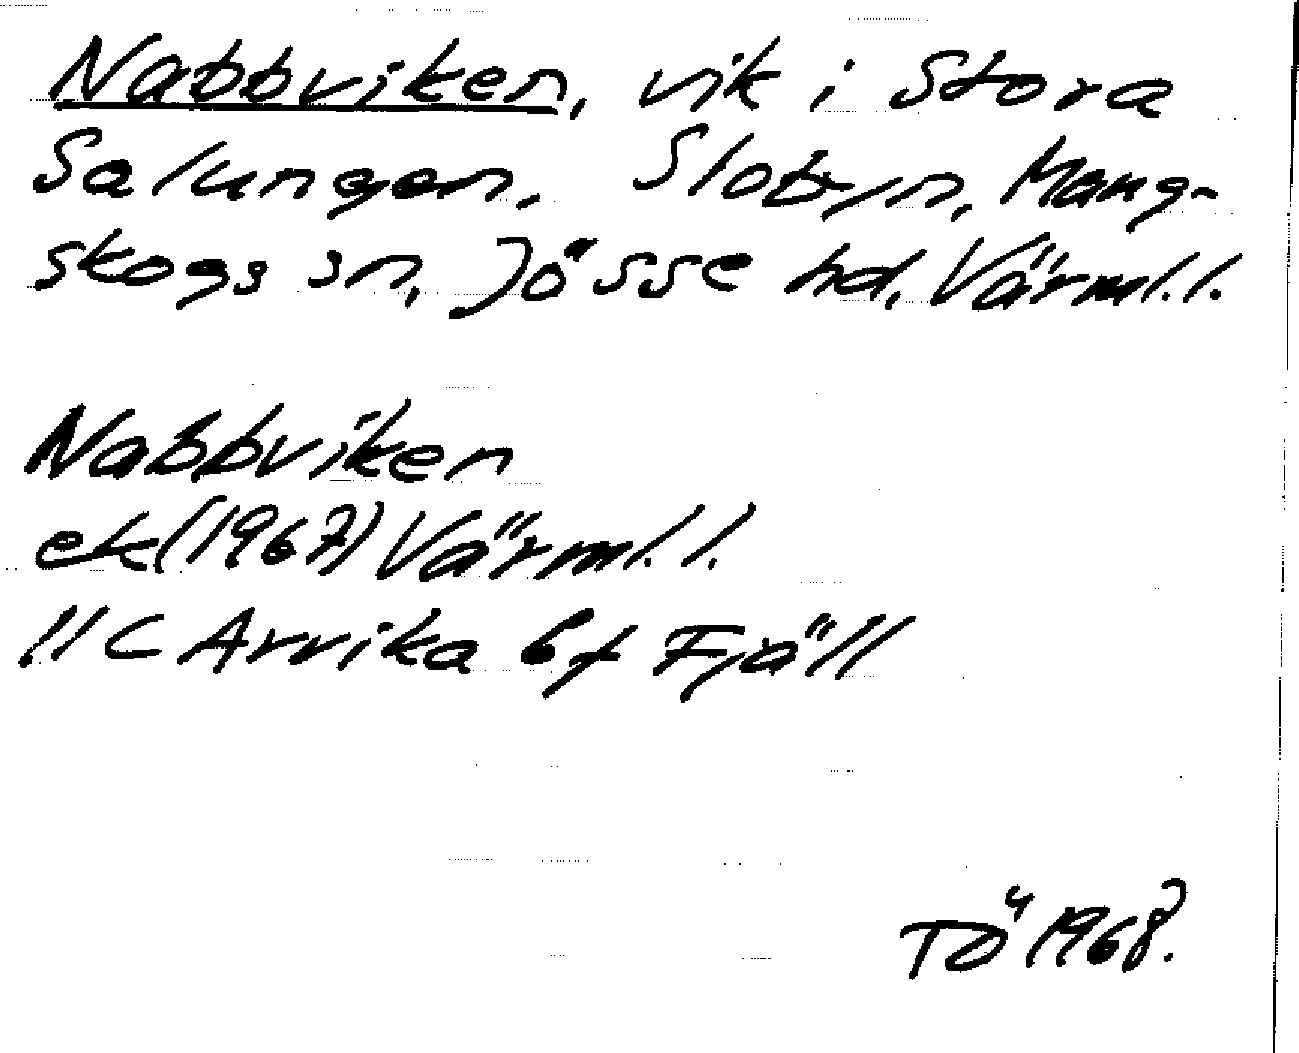 Nabbviken, vik i Stora
Salungen, Slobyn, Mang-
skogs sn, Jösse hd, Värml. l.
Nabbviken
ek (1967) Värml. l.
11C Arvika 6f Fjäll
TÖ 1968.